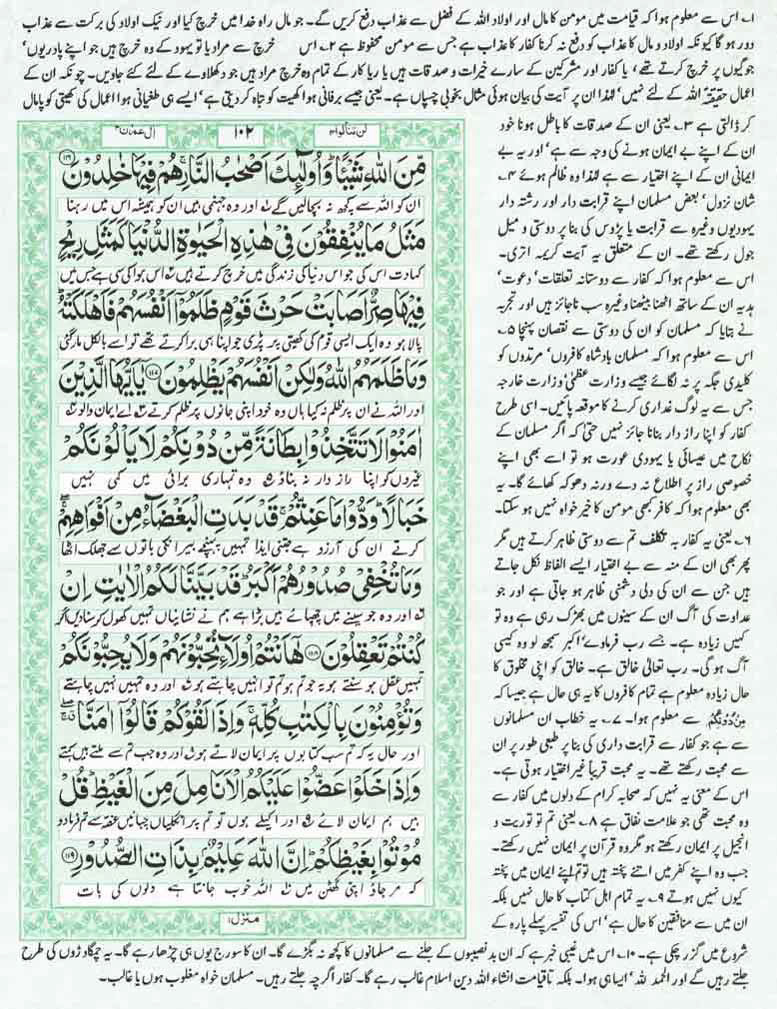 ۱۔ اس سے معلوم ہوا کہ قیامت میں مومن کا مال اور اولاد اللہ کے فضل سے عذاب دفع کریں گے۔ جو مال راہ خدا میں خرچ کیا اور نیک اولاد کی برکت سے عذاب
دور ہو گا کیونکہ اولاد و مال کا عذاب کو دفع نہ کرنا کفار کا عذاب ہے جس سے مومن محفوظ ہے ۲۔ اس خرچ سے مراد یا تو یہود کے وہ خرچ ہیں جو اپنے پادریوں'
جوگیوں پر خرچ کرتے تھے، یا کفار اور مشرکین کے سارے خیرات و صدقات ہیں یا ریا کار کے تمام وہ خرچ مراد ہیں جو دکھلاوے کے لئے کئے جاویں۔ چونکہ ان کے
اعمال حقیقتہً اللہ کے لئے نہیں' لہٰذا ان پر آیت کی بیان ہوئی مثال بخوبی چسپاں ہے۔ یعنی جیسے برفانی ہوا کھیت کو تباہ کر دیتی ہے' ایسے ہی طغیانی ہوا اعمال کی کھیتی کو پامال
کر ڈالتی ہے ۳۔ یعنی ان کے صدقات کا باطل ہونا خود
ان کے اپنے بے ایمان ہونے کی وجہ سے ہے' اور یہ بے
ایمانی ان کے اپنے اختیار سے ہے لہٰذا وہ ظالم ہوئے ۴۔
شان نزول' بعض مسلمان اپنے قرابت دار اور رشتہ دار
یہودیوں وغیرہ سے قرابت یا پڑوس کی بنا پر دوستی و میل
جول رکھتے تھے۔ ان کے متعلق یہ آیت کریمہ اتری۔
اس سے معلوم ہوا کہ کفار سے دوستانہ تعلقات' دعوت'
ہدیہ ان کے ساتھ اٹھنا بیٹھنا وغیرہ سب ناجائز ہیں اور تجربہ
نے بتایا کہ مسلمان کو ان کی دوستی سے نقصان پہنچا ۵۔
اس سے معلوم ہوا کہ مسلمان بادشاہ کافروں' مرتدوں کو
کلیدی جگہ پر نہ لگائے جیسے وزارت عظمیٰ' وزارت خارجہ
جس سے یہ لوگ غداری کرنے کا موقعہ پائیں۔ اسی طرح
کفار کو اپنا راز دار بنانا جائز نہیں حتیٰ کہ اگر مسلمان کے
نکاح میں عیسائی یا یہودی عورت ہو تو اسے بھی اپنے
خصوصی راز پر اطلاع نہ دے ورنہ دھوکہ کھائے گا۔ یہ
بھی معلوم ہوا کہ کافر کبھی مومن کا خیر خواہ نہیں ہو سکتا۔
۶۔ یعنی یہ کفار بہ تکلف تم سے دوستی ظاہر کرتے ہیں مگر
پھر بھی ان کے منہ سے بے اختیار ایسے الفاظ نکل جاتے
ہیں جن سے ان کی دلی دشمنی ظاہر ہو جاتی ہے اور جو
عداوت کی آگ ان کے سینوں میں بھڑک رہی ہے وہ تو
کہیں زیادہ ہے۔ جسے رب فرماوے' اکبر سمجھ لو وہ کیسی
آگ ہو گی۔ رب تعالیٰ خالق ہے۔ خالق کو اپنی مخلوق کا
حال زیادہ معلوم ہے تمام کافروں کا یہ ہی حال ہے جیسا کہ
مِنْ دُوْنِكُمْ سے معلوم ہوا۔ ۷۔ یہ خطاب ان مسلمانوں
سے ہے جو کفار سے قرابت داری کی بنا پر طبعی طور پر ان
سے محبت رکھتے تھے۔ یہ محبت قریباً غیر اختیار ہوتی ہے۔
اس کے معنی یہ نہیں کہ صحابہ کرام کے دلوں میں کفار سے
وہ محبت تھی جو علامت نفاق ہے ۸۔ یعنی تم تو توریت و
انجیل پر ایمان رکھتے ہو مگر وہ قرآن پر ایمان نہیں رکھتے۔
جب وہ اپنے کفر میں اتنے پختہ ہیں تو تم اپنے ایمان میں پختہ
کیوں نہیں ہوتے ۹۔ یہ تمام اہل کتاب کا حال نہیں بلکہ
ان میں سے منافقین کا حال ہے' اس کی تفسیر پہلے پارہ کے
لن تنالوا ۴
۱۰۲
ال عمران ۳
مِّنَ اللّٰهِ شَيْـًٔا ؕ وَاُولٰٓئِكَ اَصْحٰبُ النَّارِ ۚ هُمْ فِيْهَا خٰلِدُوْنَ ﴿۱۱۶﴾
ان کو اللہ سے کچھ نہ بچالیں گے اور وہ جہنمی ہیں ان کو ہمیشہ اس میں رہنا
مَثَلُ مَا يُنْفِقُوْنَ فِيْ هٰذِهِ الْحَيٰوةِ الدُّنْيَا كَمَثَلِ رِيْحٍ
کہاوت اس کی جو اس دنیا کی زندگی میں خرچ کرتے ہیں ۲ اس ہوا کی سی ہے جس میں
فِيْهَا صِرٌّ اَصَابَتْ حَرْثَ قَوْمٍ ظَلَمُوْۤا اَنْفُسَهُمْ فَاَهْلَكَتْهُ ؕ
پالا ہو وہ ایک ایسی قوم کی کھیتی پر پڑی جو اپنا ہی برا کرتے تھے تو اسے بالکل مار گئی
وَمَا ظَلَمَهُمُ اللّٰهُ وَلٰكِنْ اَنْفُسَهُمْ يَظْلِمُوْنَ ﴿۱۱۷﴾ يٰۤاَيُّهَا الَّذِيْنَ
اور اللہ نے ان پر ظلم نہ کیا ہاں وہ خود اپنی جانوں پر ظلم کرتے ہیں ۳ اے ایمان والو ۴
اٰمَنُوْا لَا تَتَّخِذُوْا بِطَانَةً مِّنْ دُوْنِكُمْ لَا يَاْلُوْنَكُمْ
غیروں کو اپنا راز دار نہ بناؤ ۵ وہ تمہاری برائی میں کمی نہیں
خَبَالًا ؕ وَدُّوْا مَا عَنِتُّمْ ۚ قَدْ بَدَتِ الْبَغْضَآءُ مِنْ اَفْوَاهِهِمْ ۖۚ
کرتے ان کی آرزو ہے جتنی ایذا تمہیں پہنچے بیر انکی باتوں سے جھلک اٹھا
وَمَا تُخْفِيْ صُدُوْرُهُمْ اَكْبَرُ ؕ قَدْ بَيَّنَّا لَكُمُ الْاٰيٰتِ اِنْ
۶ اور وہ جو سینے میں چھپائے ہیں بڑا ہے ہم نے نشانیاں تمہیں کھول کر سنا دیں اگر
كُنْتُمْ تَعْقِلُوْنَ ﴿۱۱۸﴾ هٰۤاَنْتُمْ اُولَآءِ تُحِبُّوْنَهُمْ وَلَا يُحِبُّوْنَكُمْ
تمہیں عقل ہو سنتے ہو یہ جو تم ہو تم تو انہیں چاہتے ہو ۷ اور وہ تمہیں نہیں چاہتے
وَتُؤْمِنُوْنَ بِالْكِتٰبِ كُلِّهٖ ۚ وَاِذَا لَقُوْكُمْ قَالُوْۤا اٰمَنَّا ۖۚ
اور حال یہ کہ تم سب کتابوں پر ایمان لاتے ہو ۸ اور وہ جب تم سے ملتے ہیں کہتے
وَاِذَا خَلَوْا عَضُّوْا عَلَيْكُمُ الْاَنَامِلَ مِنَ الْغَيْظِ ؕ قُلْ
ہیں ہم ایمان لائے ۹ اور اکیلے ہوں تو تم پر انگلیاں چبائیں غصہ سے تم فرما دو
مُوْتُوْا بِغَيْظِكُمْ ؕ اِنَّ اللّٰهَ عَلِيْمٌۢ بِذَاتِ الصُّدُوْرِ ﴿۱۱۹﴾
کہ مر جاؤ اپنی گھٹن میں ۱۰ اللہ خوب جانتا ہے دلوں کی بات
منزل ۱
شروع میں گزر چکی ہے۔ ۱۰۔ اس میں غیبی خبر ہے کہ ان بد نصیبوں کے جلنے سے مسلمانوں کا کچھ نہ بگڑے گا۔ ان کا سورج یوں ہی چڑھا رہے گا۔ یہ چمگادڑوں کی طرح
جلتے رہیں گے اور الحمد للہ' ایسا ہی ہوا۔ بلکہ تاقیامت انشاء اللہ دین اسلام غالب رہے گا۔ کفار اگرچہ جلتے رہیں۔ مسلمان خواہ مغلوب ہوں یا غالب۔